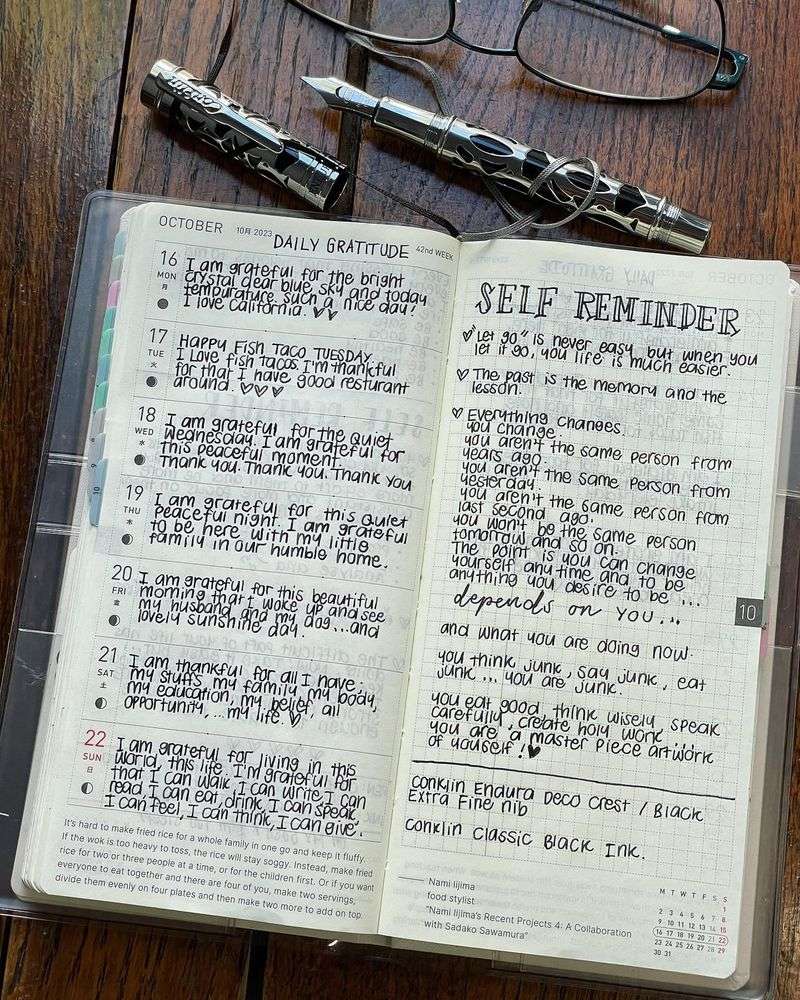 Conklin
OCTOBER 10月 2023 DAILY GRATITUDE 42nd WEEK
16 MON 月
I am grateful for the bright
crystal clear blue sky and today
tempurature. such a nice day!
I love California.
17 TUE 火
HAPPY FISH TACO TUESDAY.
I LOVE fish tacos. I'm thankful
for that I have good resturant
around.
18 WED 水
I am grateful for the quiet
Wednesday. I am grateful for
this peaceful moment.
Thank you. Thank you. Thank you
19 THU 木
I am grateful for this quiet
Peaceful night. I am grateful
to be here with my little
family in our humble home.
20 FRI 金
I am grateful for this beautiful
morning that I woke up and see
my husband and my dog...and
lovely sunshine day.
21 SAT 土
I am thankful for all I have;
my stuffs, my family, my body,
my education, my belief, all
opportunity, ...my life.
22 SUN 日
I am grateful for living in this
world, this life. I'm grateful for
that I can walk, I can write, I can
read, I can eat, drink, I can speak,
I can feel, I can think, I can give.
It's hard to make fried rice for a whole family in one go and keep it fluffy.
If the wok is too heavy to toss, the rice will stay soggy. Instead, make fried
rice for two or three people at a time, or for the children first. Or if you want
everyone to eat together and there are four of you, make two servings,
divide them evenly on four plates and then make two more to add on top.
SELF REMINDER
"Let go" is never easy, but when you
let it go, you life is much easier.
The past is the memory and the
lesson.
Everything changes.
you change.
you aren't the same person from
years ago.
you aren't the same person from
yesterday.
you aren't the same person from
last second ago.
you won't be the same person
tomorrow and so on.
The point is you can change
yourself anytime and to be
anything you desire to be ...
depends on you...
and what you are doing now.
you think junk, say junk, eat
junk ... you are junk.
you eat good, think wisely, speak
carefully, create holy work ...
you are a master piece artwork
of youself!
10
Conklin Endura Deco Crest / Black
Extra Fine nib
Conklin Classic Black Ink.
Nami Iijima
food stylist
"Nami Iijima's Recent Projects 4: A Collaboration
with Sadako Sawamura"
M T W T F S S
1
2 3 4 5 6 7 8
9 10 11 12 13 14 15
16 17 18 19 20 21 22
23 24 25 26 27 28 29
30 31
9
10